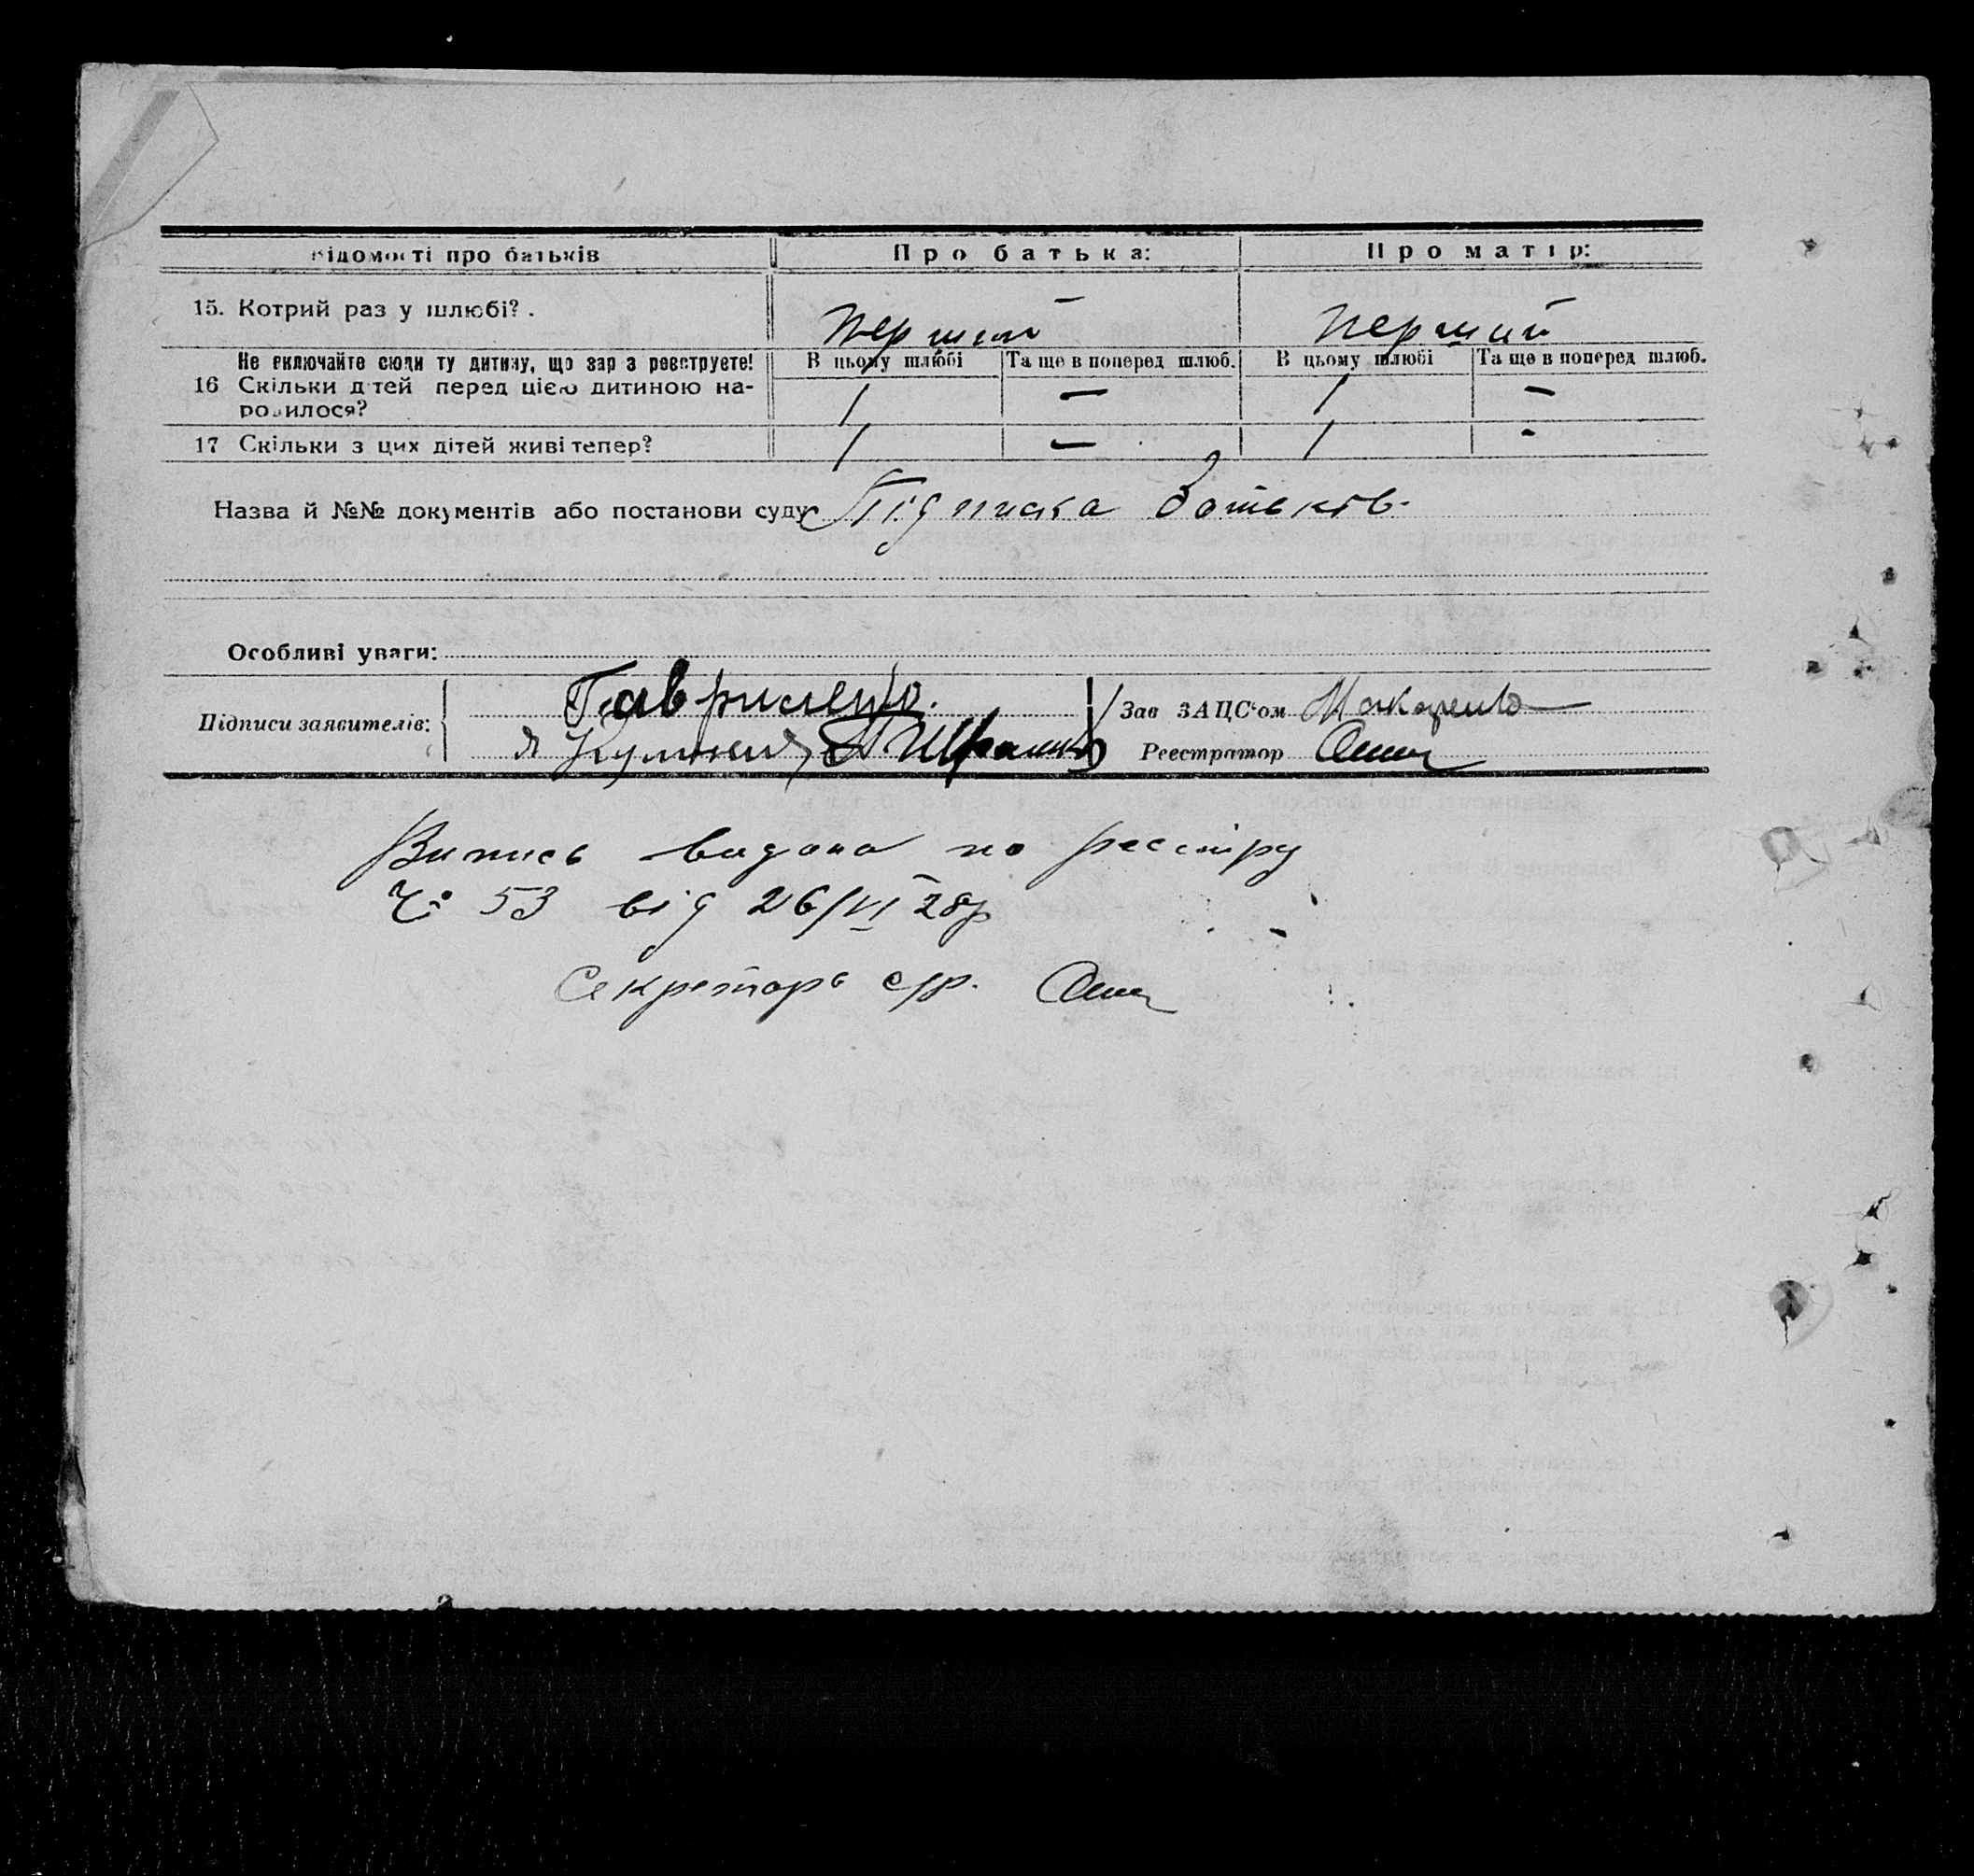 Відомості про батьків Про батька: Про матір:
15. Котрий раз у шлюбі? . Перший Перший
Не включайте сюди ту дитину, що зар з реєструєте! В цьому шлюбі Та ще в поперед шлюб. В цьому шлюбі Та ще в поперед шлюб.
16 Скільки дітей перед цією дитиною на-
родилося? 1 — 1 —
17 Скільки з цих дітей живі тепер? 1 — 1 -
Назва й №№ документів або постанови суду Підписка батьків.
Особливі уваги:
Підписи заявителів: Гавриленко. Зав ЗАЦС'ом Макаренко
Реєстратор
Випись видана по реєстру
№ 53 від 26/VI 28р
Секретарь с/р.